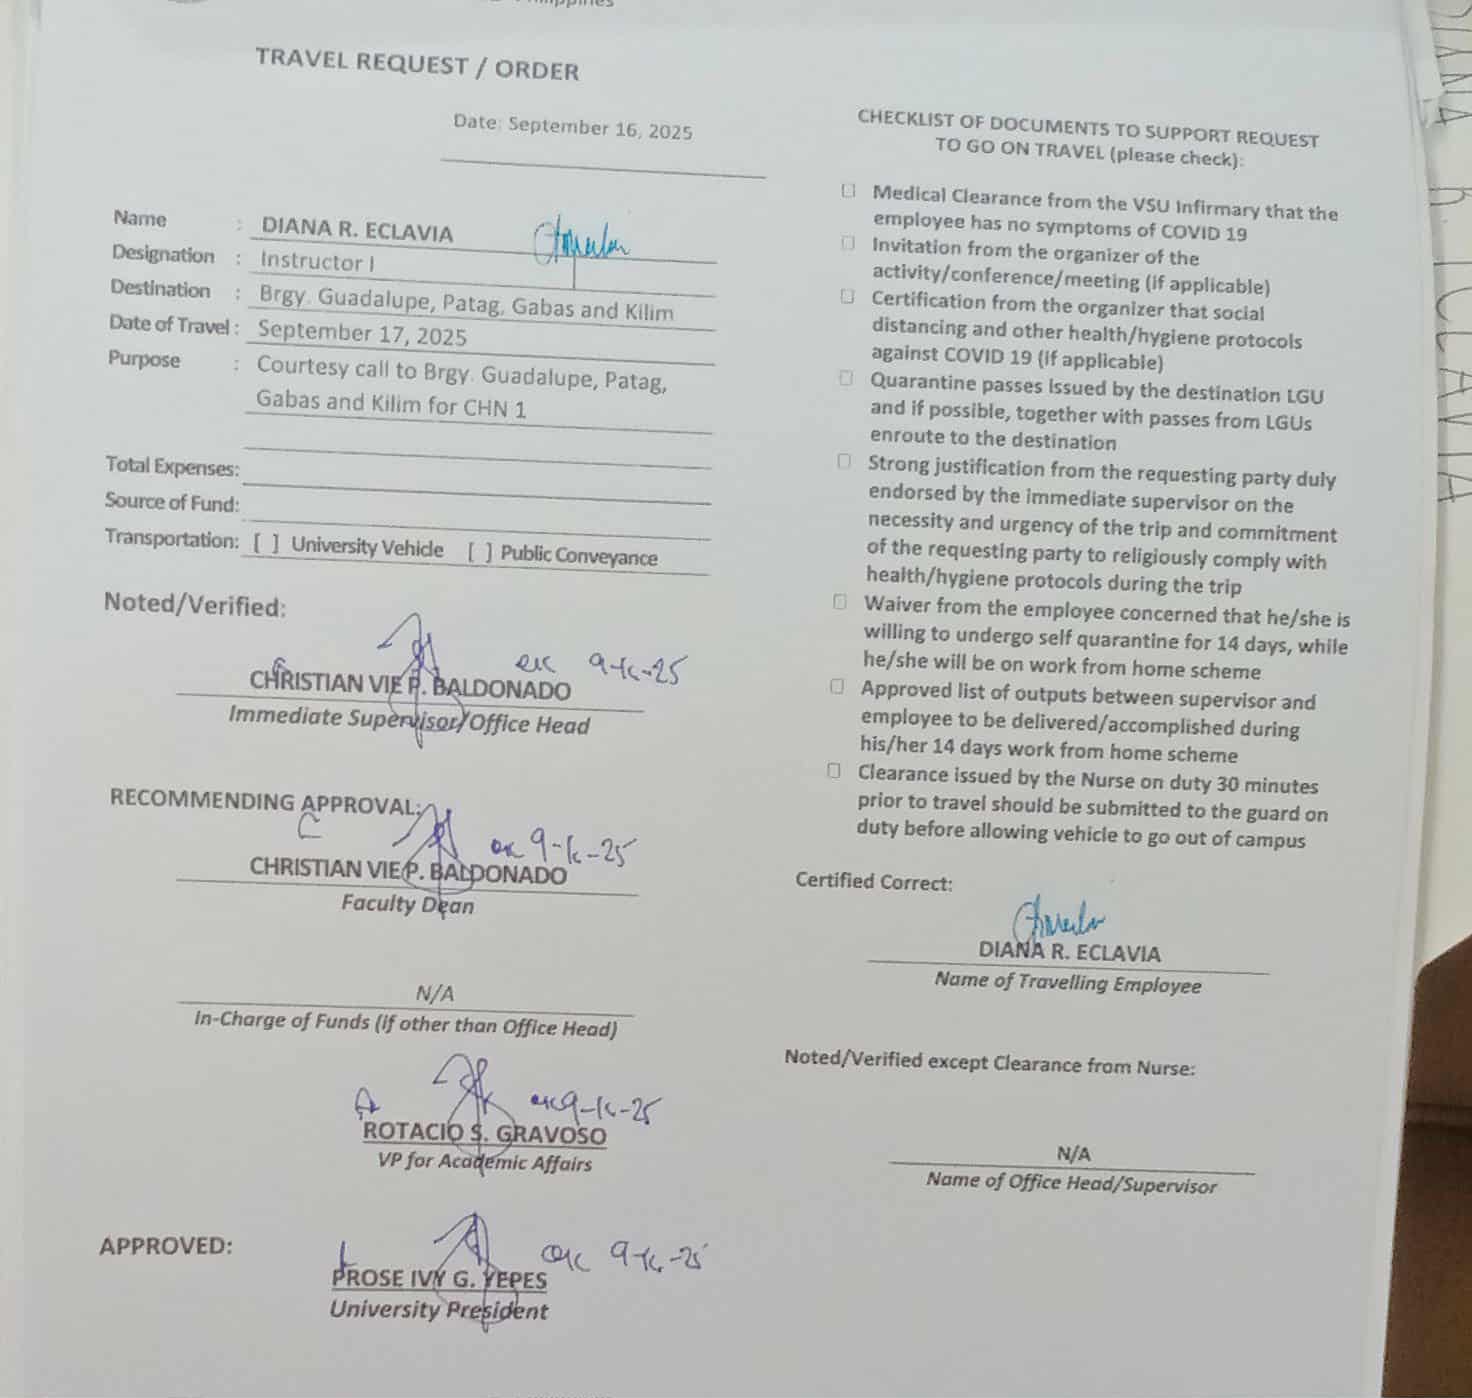 TRAVEL REQUEST / ORDER
Date: September 16, 2025
Name : DIANA R. ECLAVIA
Designation : Instructor I
Destination : Brgy. Guadalupe, Patag, Gabas and Kilim
Date of Travel : September 17, 2025
Purpose : Courtesy call to Brgy. Guadalupe, Patag,
Gabas and Kilim for CHN 1
Total Expenses:
Source of Fund:
Transportation: [ ] University Vehicle [ ] Public Conveyance
Noted/Verified:
CHRISTIAN VIE P. BALDONADO
Immediate Supervisor/Office Head
RECOMMENDING APPROVAL:
CHRISTIAN VIE P. BALDONADO
Faculty Dean
N/A
In-Charge of Funds (if other than Office Head)
ROTACIO S. GRAVOSO
VP for Academic Affairs
APPROVED:
PROSE IVY G. YEPES
University President
CHECKLIST OF DOCUMENTS TO SUPPORT REQUEST
TO GO ON TRAVEL (please check):
Medical Clearance from the VSU Infirmary that the
employee has no symptoms of COVID 19
Invitation from the organizer of the
activity/conference/meeting (if applicable)
Certification from the organizer that social
distancing and other health/hygiene protocols
against COVID 19 (if applicable)
Quarantine passes issued by the destination LGU
and if possible, together with passes from LGUs
enroute to the destination
Strong justification from the requesting party duly
endorsed by the immediate supervisor on the
necessity and urgency of the trip and commitment
of the requesting party to religiously comply with
health/hygiene protocols during the trip
Waiver from the employee concerned that he/she is
willing to undergo self quarantine for 14 days, while
he/she will be on work from home scheme
Approved list of outputs between supervisor and
employee to be delivered/accomplished during
his/her 14 days work from home scheme
Clearance issued by the Nurse on duty 30 minutes
prior to travel should be submitted to the guard on
duty before allowing vehicle to go out of campus
Certified Correct:
DIANA R. ECLAVIA
Name of Travelling Employee
Noted/Verified except Clearance from Nurse:
N/A
Name of Office Head/Supervisor
DIANA R. ECLAVIA